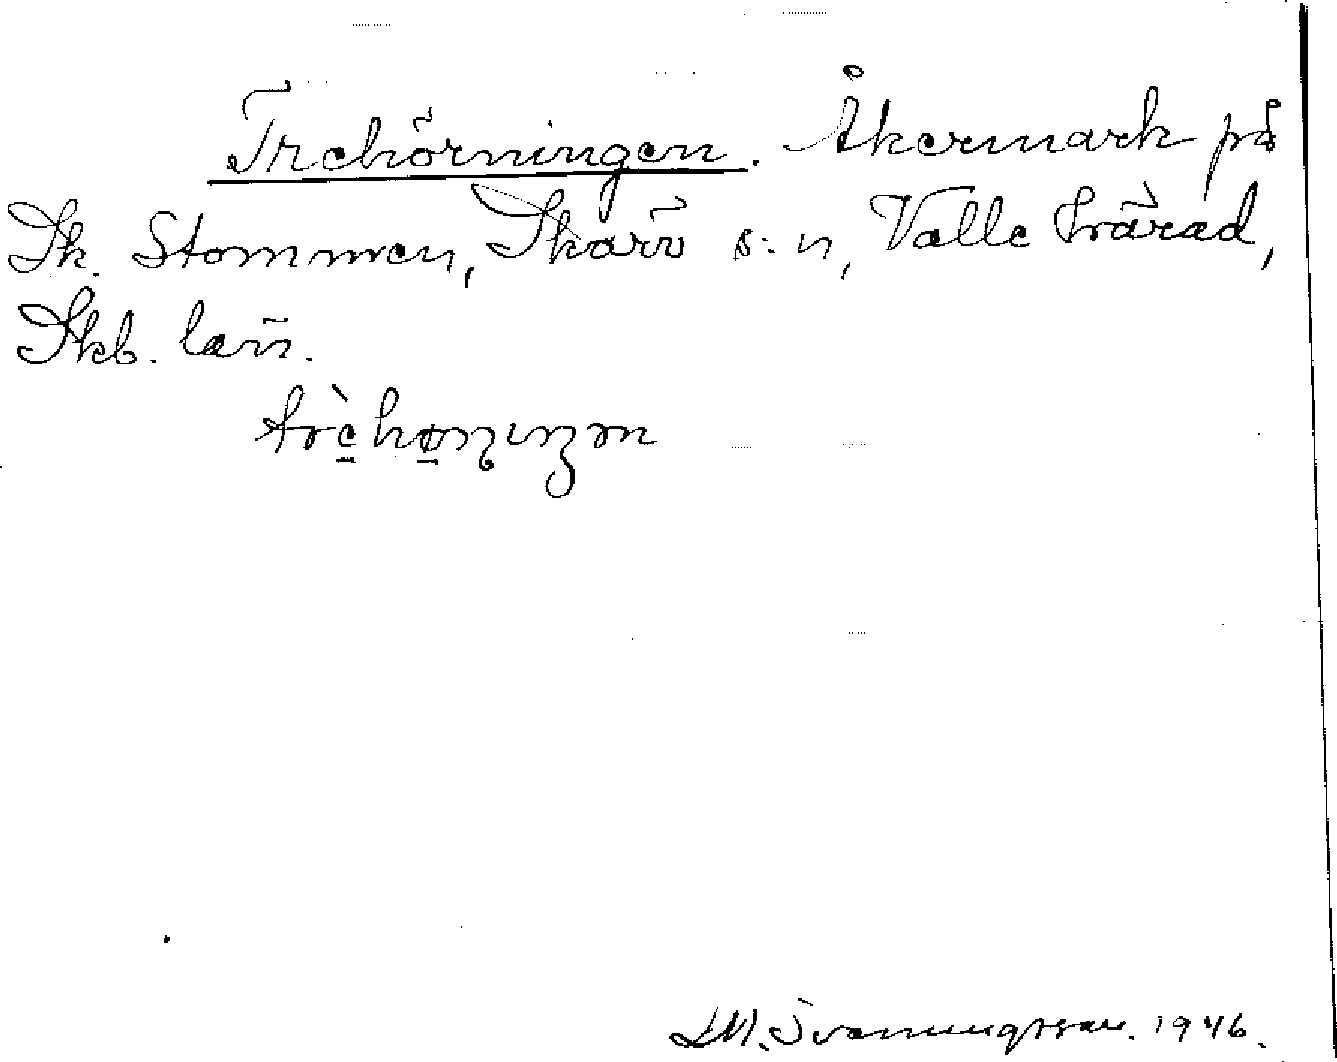 Trehörningen. Åkermark på
Sk. Stommen, Skärv s:n, Valle härad,
Skb. län.
S.M. Svenungsson. 1946.